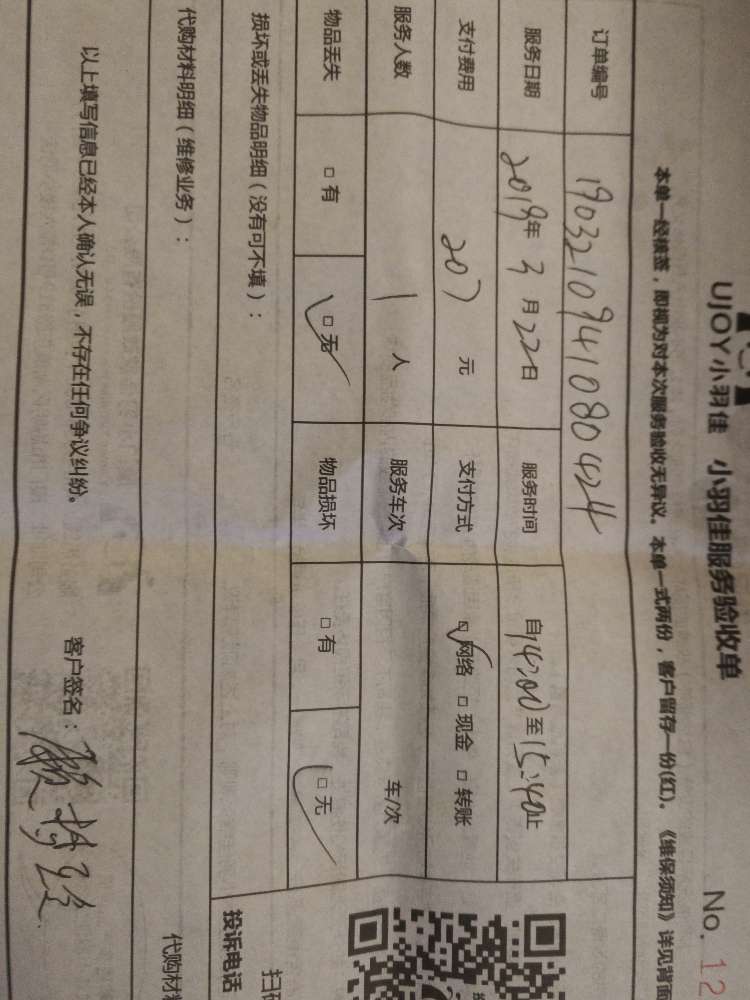 UJOY小羽佳 小羽佳服务验收单 No. 12
本单一经核签，即视为对本次服务验收无异议。本单一式两份，客户留存一份(红)。《维保须知》详见背面
订单编号 1903210941080424
服务日期 2019年3月22日 服务时间 自14:00至15:40止
支付费用 207元 支付方式 ☑网络 □现金 □转账
服务人数 1人 服务车次 车/次
物品丢失 □有 ☑无 物品损坏 □有 ☑无
损坏或丢失物品明细（没有可不填）：
投诉电话
代购材料明细（维修业务）：
以上填写信息已经本人确认无误，不存在任何争议纠纷。 客户签名：